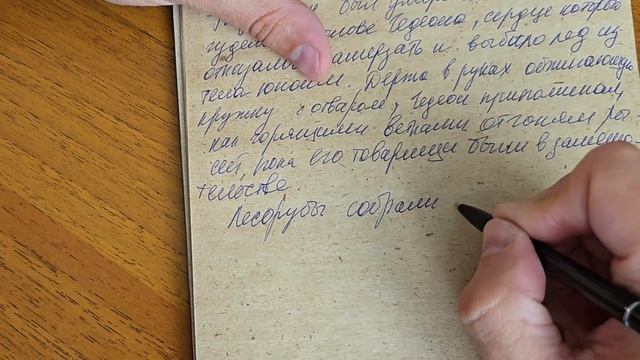 был
голове Гедеона, сердце которого
чудом отказалось замерзать и выбило лёд из
тела юноши. Держа в руках обжигающую
кружку с отваром, Гедеон припоминал,
как горящими ветвями отгоняли
пока его товарищи были в замеша-
тельстве.
Лесорубы собрали